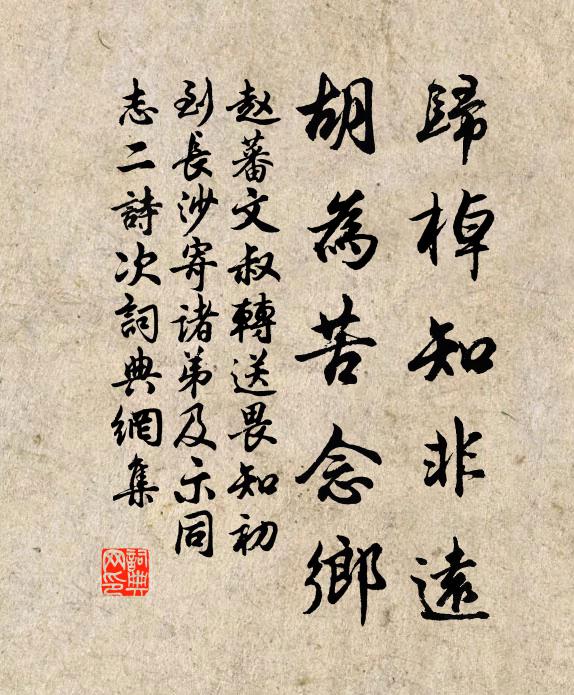 歸棹知非遠
胡為苦念鄉
赵蕃文叔轉送畏知初
到長沙寄諸弟及示同
志二詩次詞典網集
詞典网印